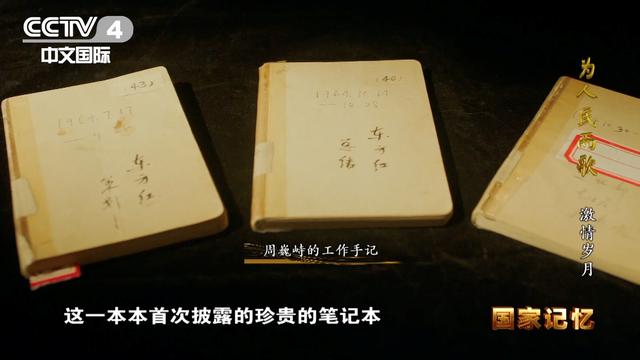 CCTV 4
中文国际
(43)
东方红
(46)
东方红
总结
为人民而歌 激情岁月
周巍峙的工作手记
这一本本首次披露的珍贵的笔记本
国家记忆